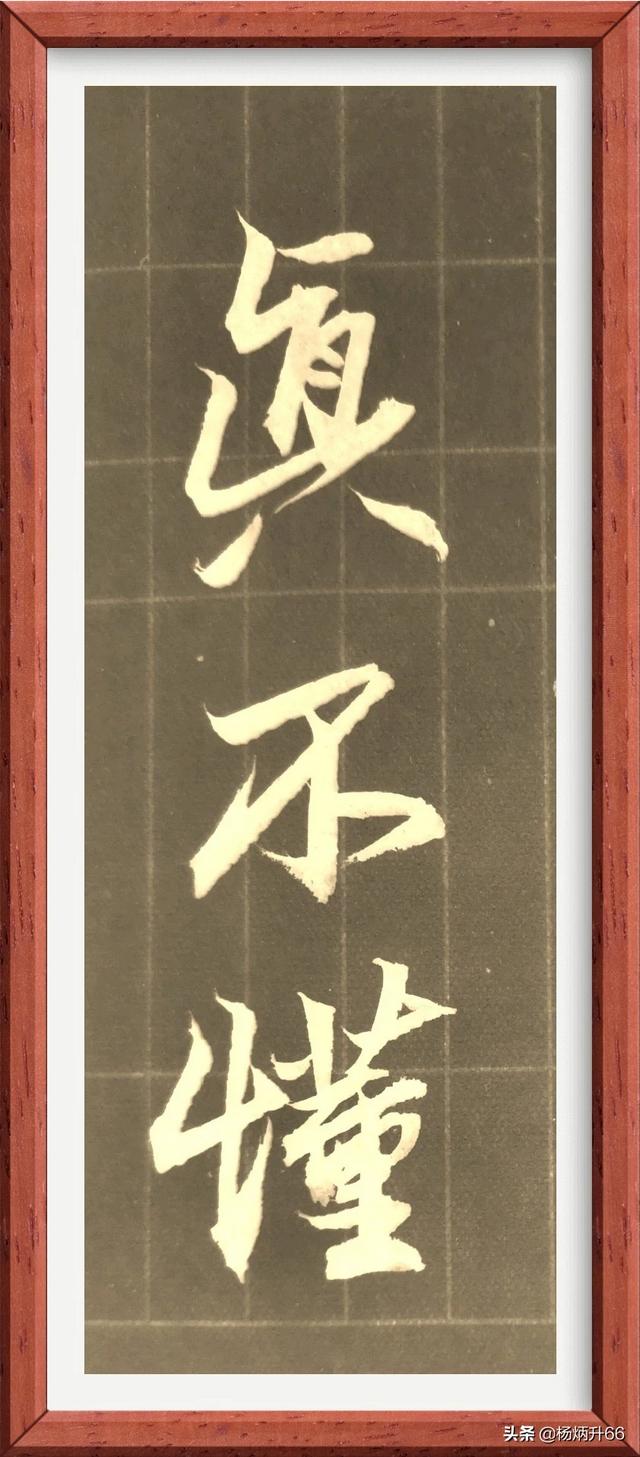 眞不懂
头条 @杨炳升66